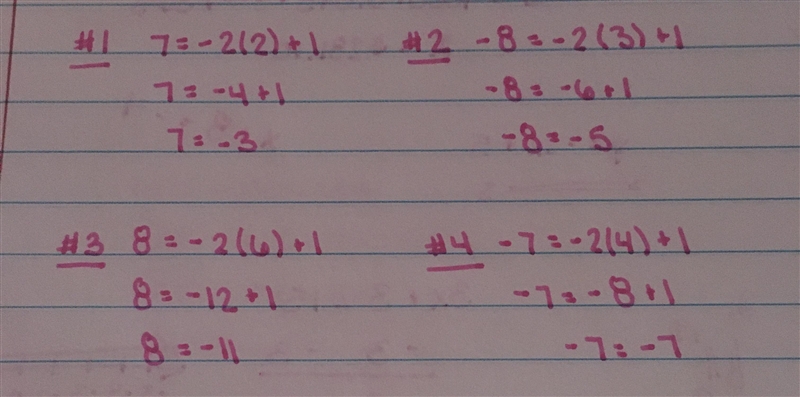 #1 7 = -2(2) + 1
7 = -4 + 1
7 = -3
#2 -8 = -2(3) + 1
-8 = -6 + 1
-8 = -5
#3 8 = -2(6) + 1
8 = -12 + 1
8 = -11
#4 -7 = -2(4) + 1
-7 = -8 + 1
-7 = -7